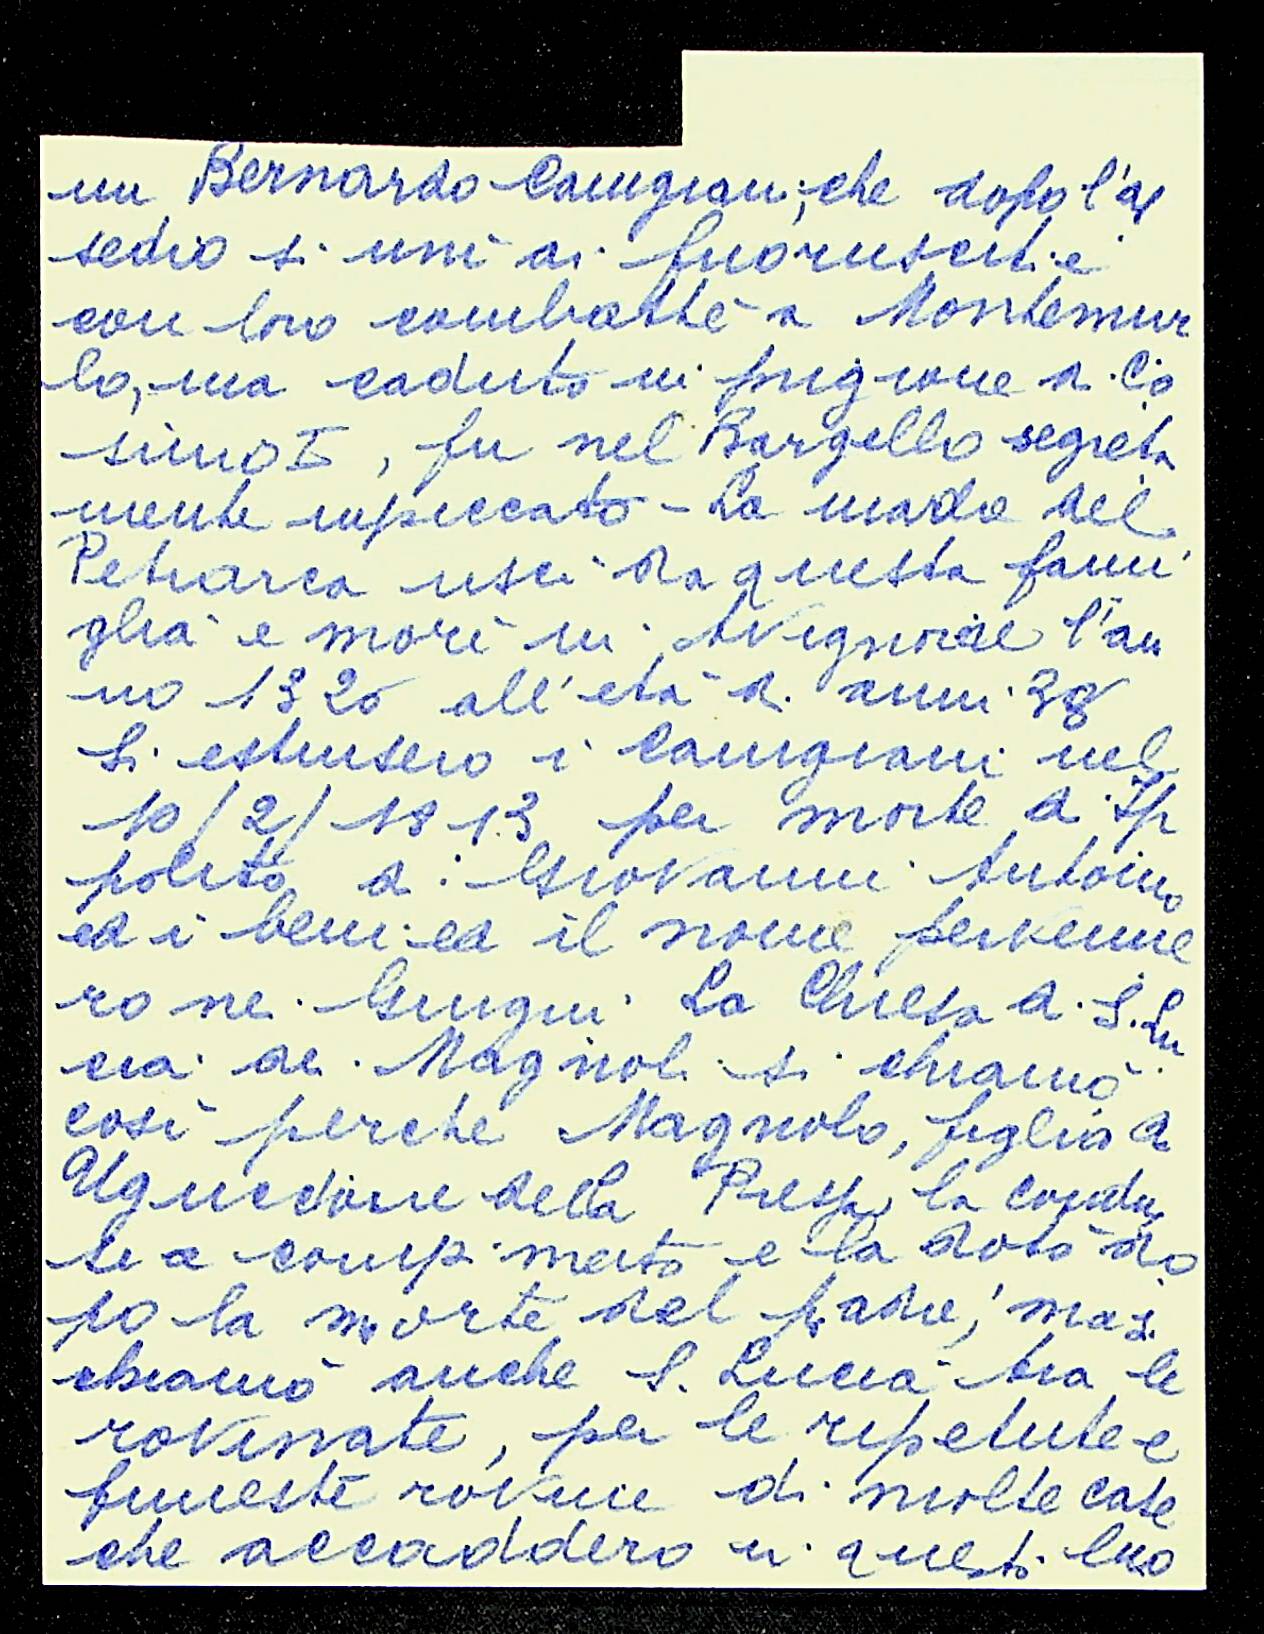 un Bernardo Canigiani, che dopo l'as
sedio si unì ai fuorusciti e
con loro combattè a Montemur
lo, ma caduto in prigione di Co
simo I, fu nel Bargello segreta
mente impiccato - La madre del
Petrarca uscì da questa fami
glia e morì in Avignone l'an
no 1320 all'età di anni 38
Si estinsero i Canigiani nel
10/2/1813 per morte di Ip
polito di Giovanni Antonio
ed i beni ed il nome pervenne
ro nei Giugni La Chiesa di S. Lu
cia dei Magnoli si chiamò
così perche Magnolo, figlio di
Uguccione della Pressa, la condus
se a compimento e la dotò do
po la morte del padre, ma si
chiamò anche S. Lucia tra le
rovinate, per le ripetute e
funeste rovine di molte case
che accaddero in questi luo